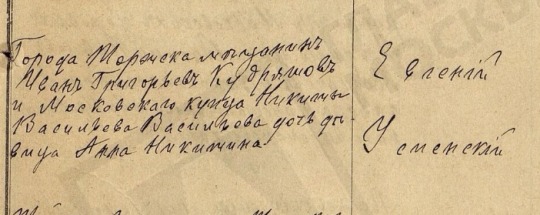 Города Торопска мѣщанинъ
Иванъ Григорьевъ Кудряшовъ
и Московскаго купца Никиты
Васильева Васильева дочь дѣ-
вица Анна Никитина
Евгеній
Успенскій